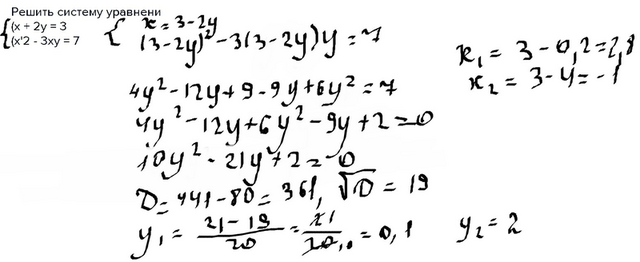 Решить систему уравнени
{(x + 2y = 3
(x'2 - 3xy = 7
{ x = 3-2y
(3-2y)² - 3(3-2y)y = 7
4y² - 12y + 9 - 9y + 6y² = 7
4y² - 12y + 6y² - 9y + 2 = 0
10y² - 21y + 2 = 0
D = 441 - 80 = 361, √D = 19
y₁ = (21-19)/20 = /20₁₀ = 0,1
y₂ = 2
x₁ = 3 - 0,2 = 2,8
x₂ = 3 - 4 = -1